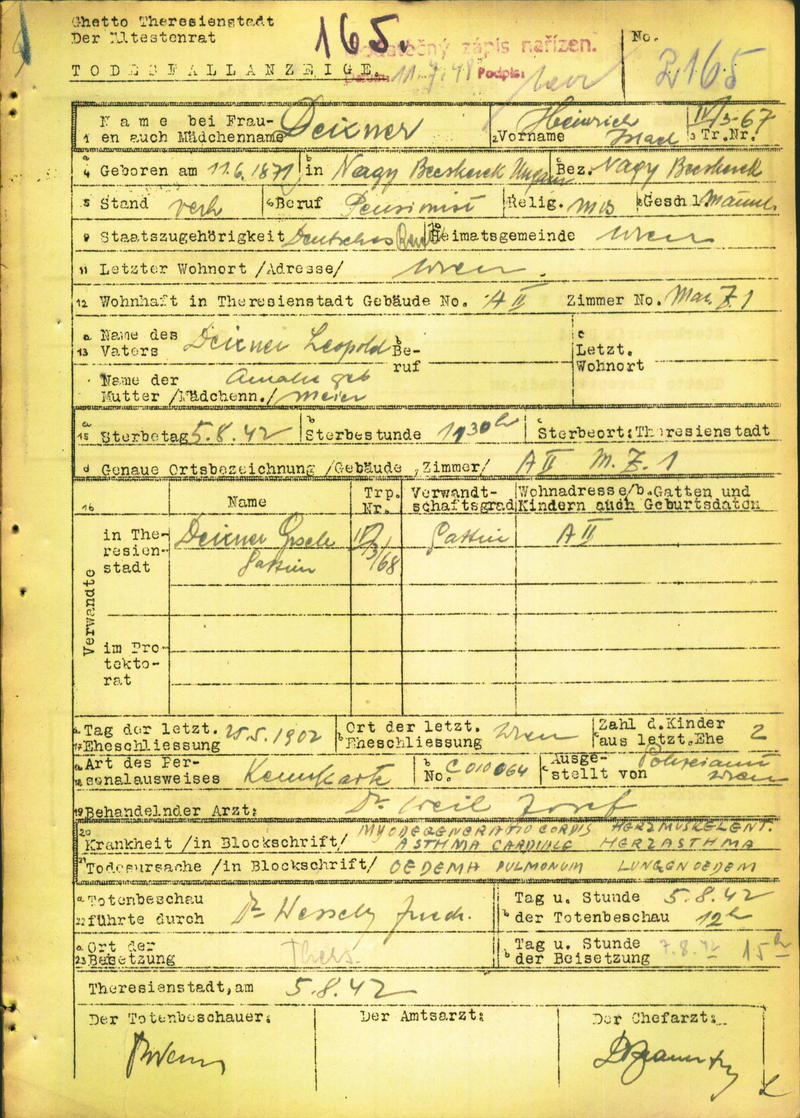 Ghetto Theresienstadt
Der Ältestenrat
165.
Dodatečný zápis nařízen.
No.
2,165
TODESFALLANZEIGE.
11.7.48 Podpis:
1 Name bei Frauen auch Mädchenname Deixner
2 Vorname Heinrich Israel
3 Tr.Nr. IV/3-67
4 a Geboren am 11.6.1871 b in Nagy Becskerek Ungarn Bez. Nagy Becskerek
5 Stand verh 6 Beruf Pensionist 7 Relig. mos 8 Geschl. Männl.
9 Staatszugehörigkeit Deutsches 10 Heimatsgemeinde Wien
11 Letzter Wohnort /Adresse/ Wien.
12 Wohnhaft in Theresienstadt Gebäude No. A II Zimmer No. Mar. Z. 1
a 13 Name des Vaters Deixner Leopold b Beruf c Letzt. Wohnort
Name der Mutter /Mädchenn./ Amalie geb Meier
a 15 Sterbetag 5.8.42 b Sterbestunde c Sterbeort: Theresienstadt
d Genaue Ortsbezeichnung /Gebäude, Zimmer/ A II M. Z. 1
16 Name Trp. Nr. Verwandtschaftsgrad Wohnadresse/b.Gatten und Kindern auch Geburtsdaten
Verwandte
in Theresienstadt Deixner IV/3/68 Gattin A II
Gattin
im Protektorat
a 17 Tag der letzt. Eheschliessung 25.5.1902 b Ort der letzt. Eheschliessung Wien Zahl d.Kinder aus letzt.Ehe 2
a 18 Art des Personalausweises Kennkarte b No. C 010064 Ausgestellt von Polizeiamt Wien
19 Behandelnder Arzt: Dr. Weil Josef
20 Krankheit /in Blockschrift/ MYODEGENERATIO CORDIS HERZMUSKELENT.
ASTHMA CARDIALE HERZASTHMA
21 Todesursache /in Blockschrift/ OEDEMA PULMONUM LUNGENOEDEM
a 22 Totenbeschau führte durch Dr. Wessely b Tag u. Stunde der Totenbeschau 5.8.42 12h
a 23 Ort der Beisetzung Ther. b Tag u. Stunde der Beisetzung 7.8.42 15h
Theresienstadt, am 5.8.42
Der Totenbeschauer: Der Amtsarzt: Der Chefarzt: